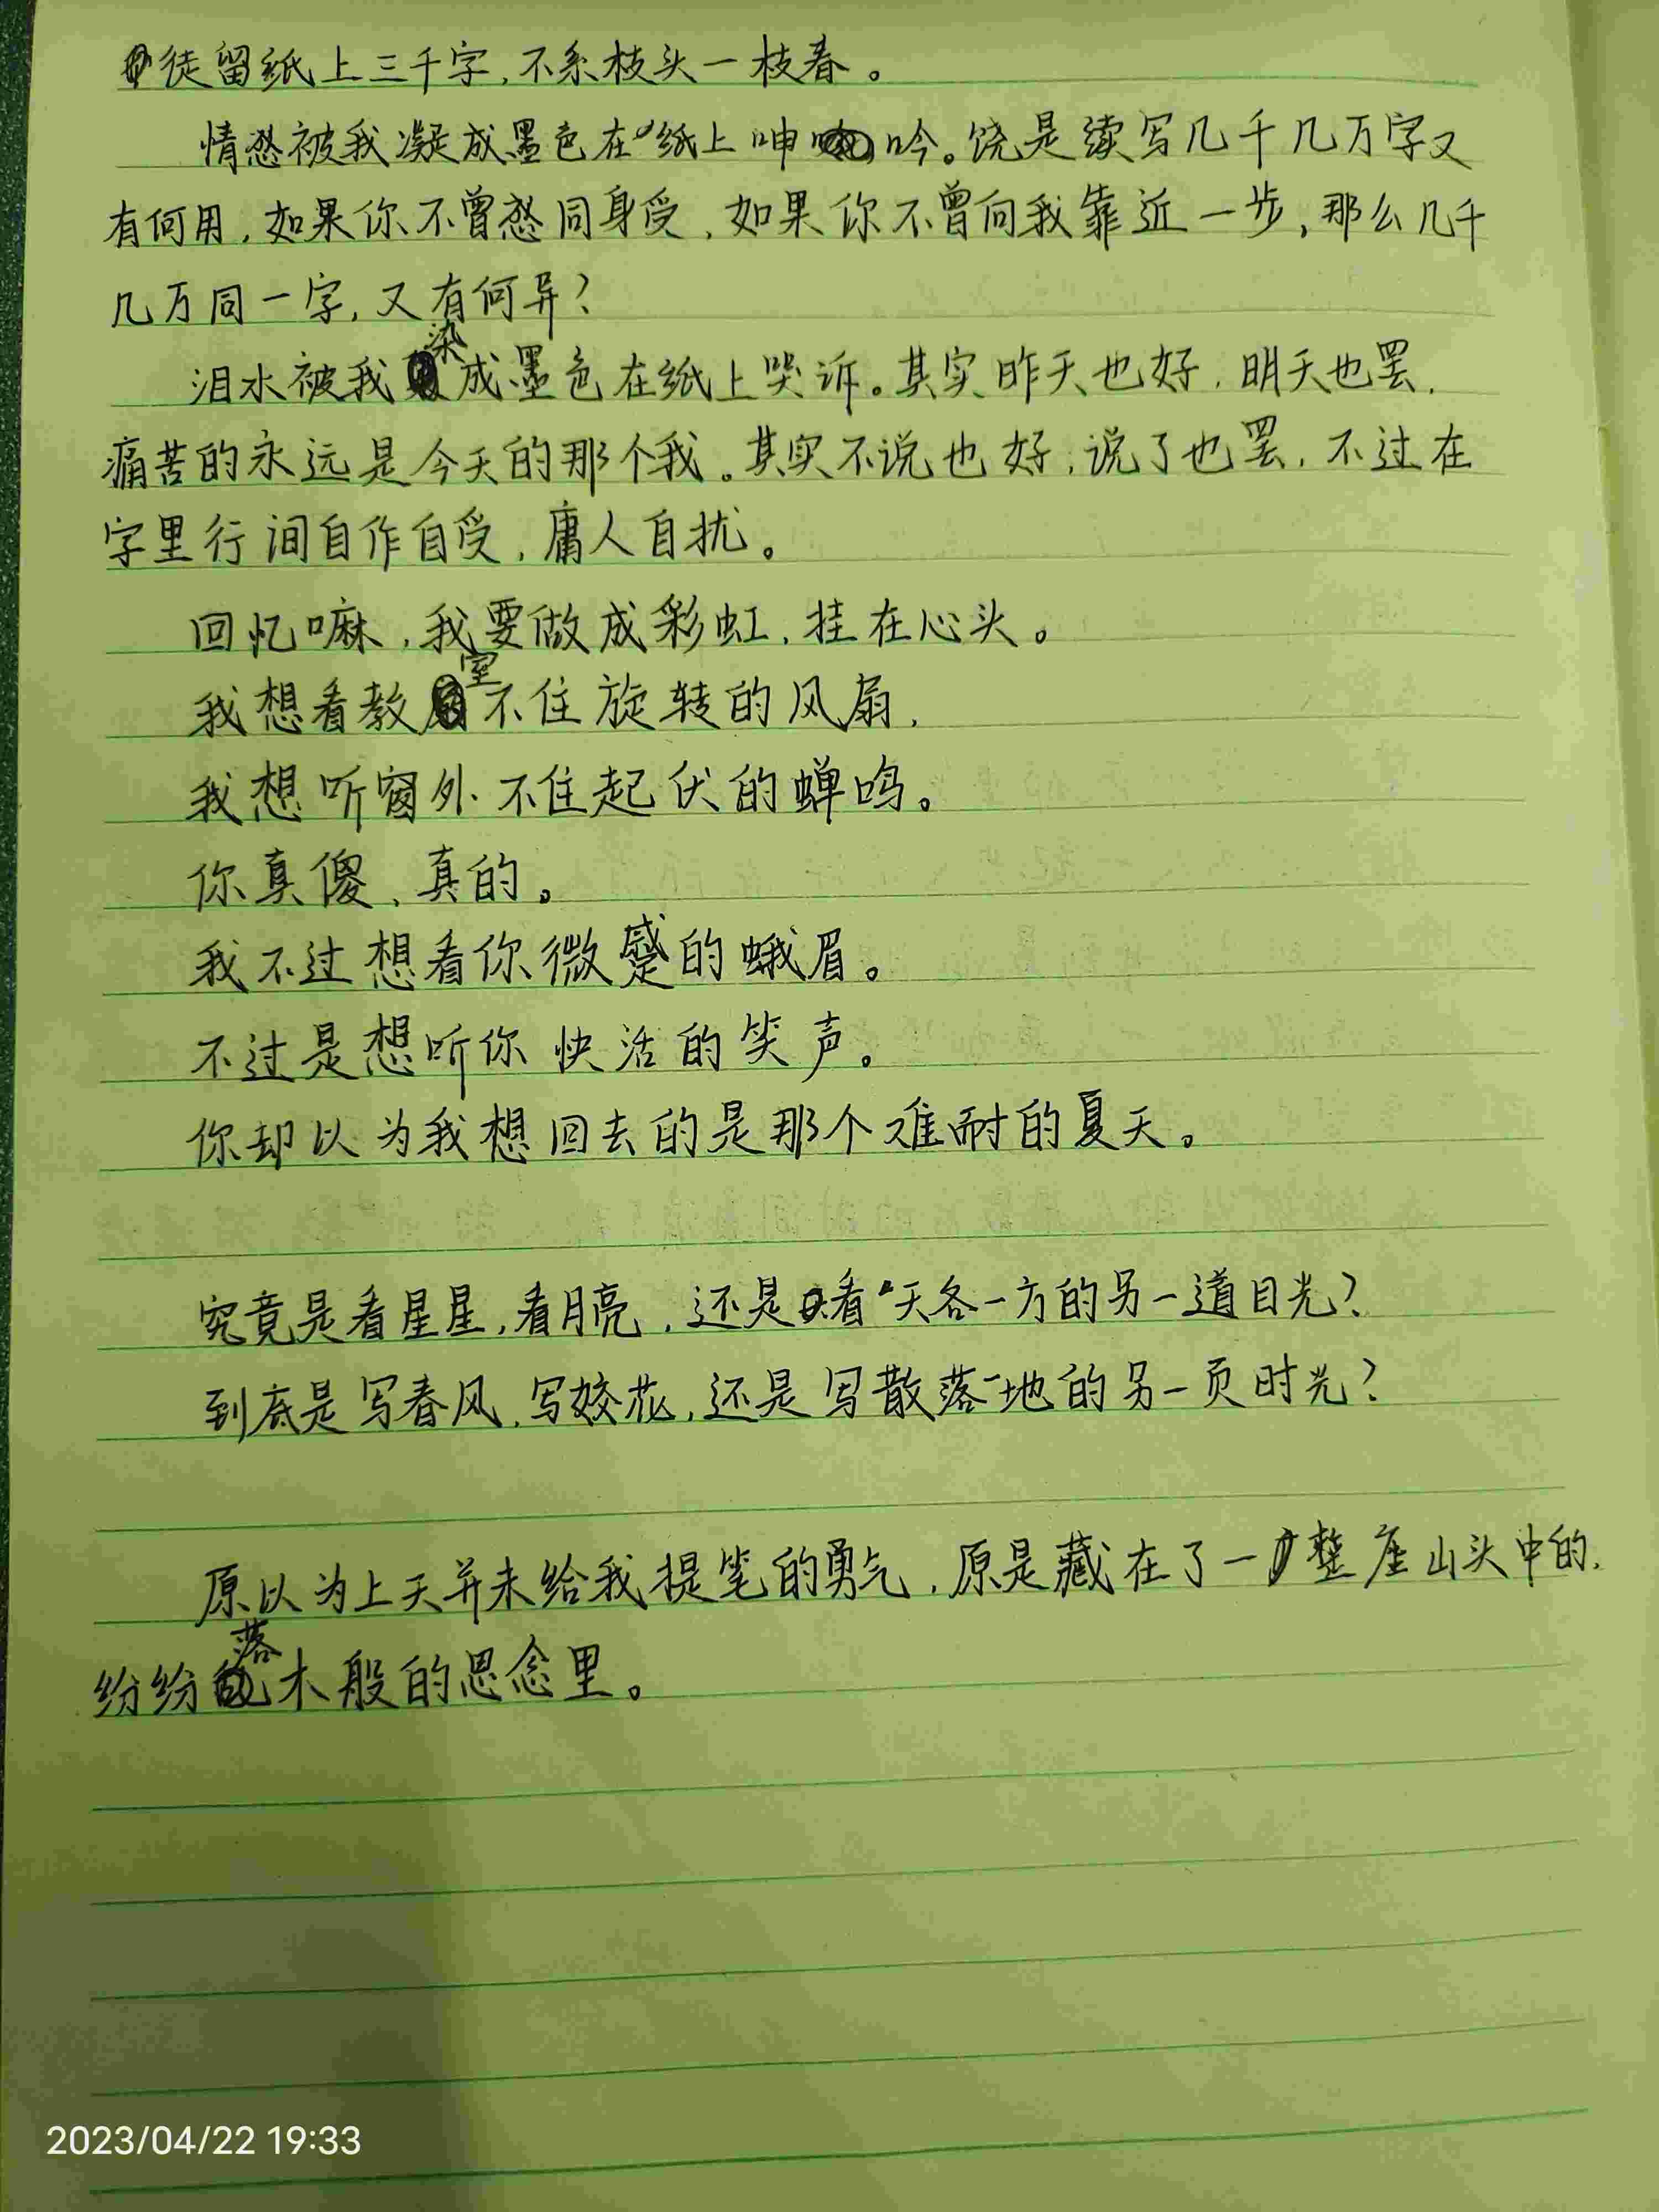 徒留纸上三千字,不系枝头一枝春。
情愁被我凝成墨色在纸上呻吟。饶是续写几千几万字又
有何用,如果你不曾愁同身受,如果你不曾向我靠近一步,那么几千
几万同一字,又有何异?
泪水被我染成墨色在纸上哭诉。其实昨天也好,明天也罢,
痛苦的永远是今天的那个我。其实不说也好,说了也罢,不过在
字里行间自作自受,庸人自扰。
回忆嘛,我要做成彩虹,挂在心头。
我想看教室不住旋转的风扇,
我想听窗外不住起伏的蝉鸣。
你真傻,真的。
我不过想看你微蹙的蛾眉。
不过是想听你快活的笑声。
你却以为我想回去的是那个难耐的夏天。
究竟是看星星,看月亮,还是看天各一方的另一道目光?
到底是写春风,写姣花,还是写散落一地的另一页时光?
原以为上天并未给我提笔的勇气,原是藏在了一整座山头中的,
纷纷落木般的思念里。
2023/04/22 19:33